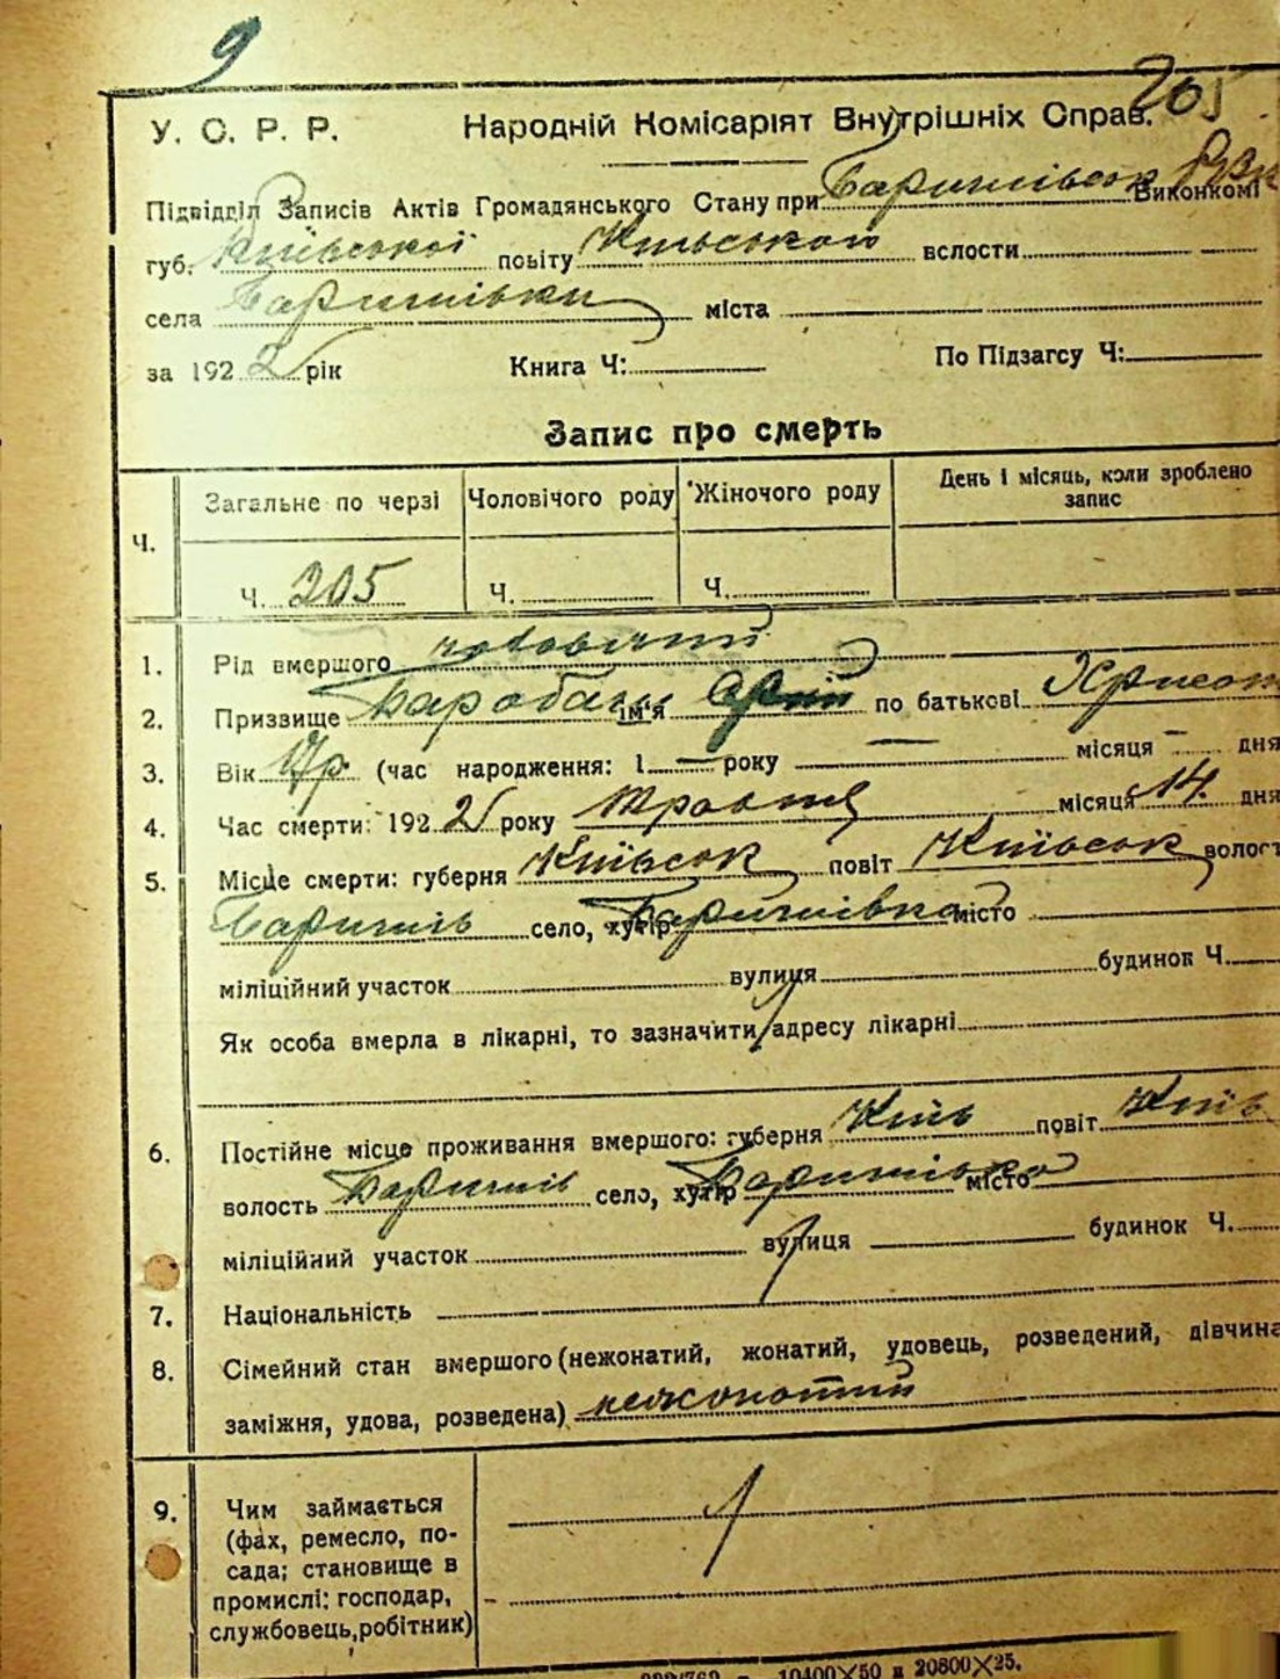 9
205
У. С. Р. Р. Народній Комісаріят Внутрішніх Справ.
Підвідділ Записів Актів Громадянського Стану при Баришівськ Виконкомі
губ. Київської повіту Київського вслости
села Баришівки міста
за 1922 рік Книга Ч: По Підзагсу Ч:
Запис про смерть
Ч. Загальне по черзі Чоловічого роду Жіночого роду День і місяць, коли зроблено
запис
Ч. 205 Ч. Ч.
1. Рід вмершого чоловічий
2. Призвище ім'я по батькові
3. Вік (час народження: 1 — року — місяця — дня
4. Час смерти: 1922 року Травня місяця 14 дня
5. Місце смерти: губерня Київськ повіт Київськ волост
Баришів село, хутір Баришівка місто
міліційний участок вулиця будинок Ч.
Як особа вмерла в лікарні, то зазначити адресу лікарні
6. Постійне місце проживання вмершого: губерня Київ повіт Київ
волость Баришів село, хутір Баришівка місто
міліційний участок вулиця будинок Ч.
7. Національність
8. Сімейний стан вмершого (нежонатий, жонатий, удовець, розведений, дівчина
заміжня, удова, розведена) нежонатий
9. Чим займається
(фах, ремесло, по-
сада; становище в
промислі: господар,
службовець, робітник)
10400×50 и 20800×25.